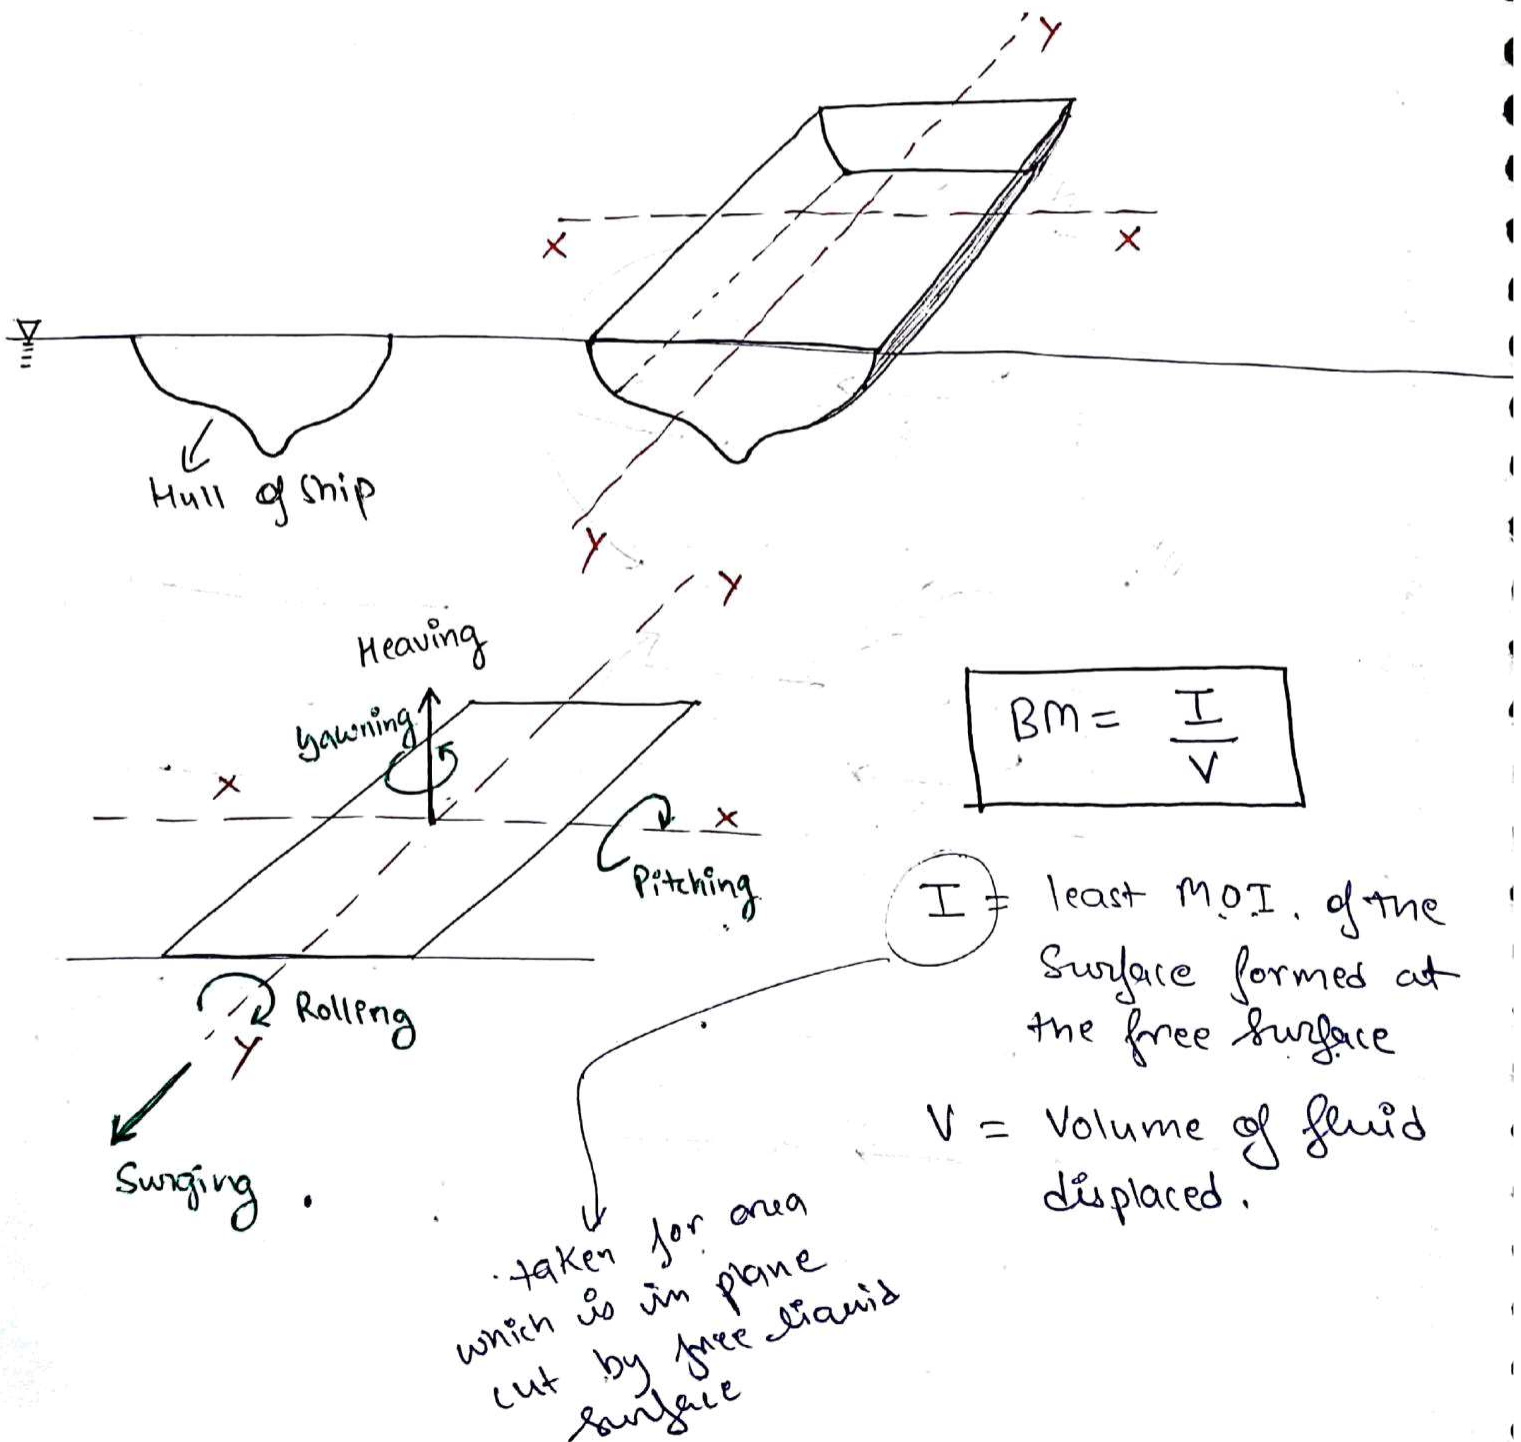 Y
X
X
Hull of Ship
Y
Y
Heaving
Yawning
X
X
Pitching
Rolling
Y
Surging.
BM = I/V
I = least M.O.I. of the
Surface formed at
the free surface
V = Volume of fluid
displaced.
taken for area
which is in plane
cut by free liquid
surface